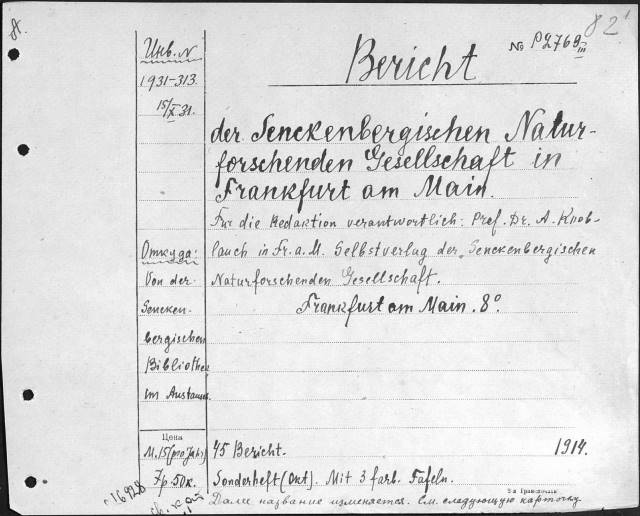 82
Инв. N
1931-313.
15/X 31.
Bericht
№ P2768 III
der Senckenbergischen Natur-
forschenden Gesellschaft in
Frankfurt am Main.
Für die Redaktion verantwortlich: Prof. Dr. A. Knob-
lauch in Fr. a. M. Selbstverlag der „Senckenbergischen
Naturforschenden Gesellschaft.
Frankfurt am Main. 8°.
Откуда:
Von der
Sencken-
bergischen
Bibliothek
im Austausch.
Цена
M. 15 (pro Jahr)
7р. 50к.
45 Bericht. 1914.
Sonderheft (Okt). Mit 3 farb. Tafeln.
Далее название изменяется. См. следующую карточку
16928